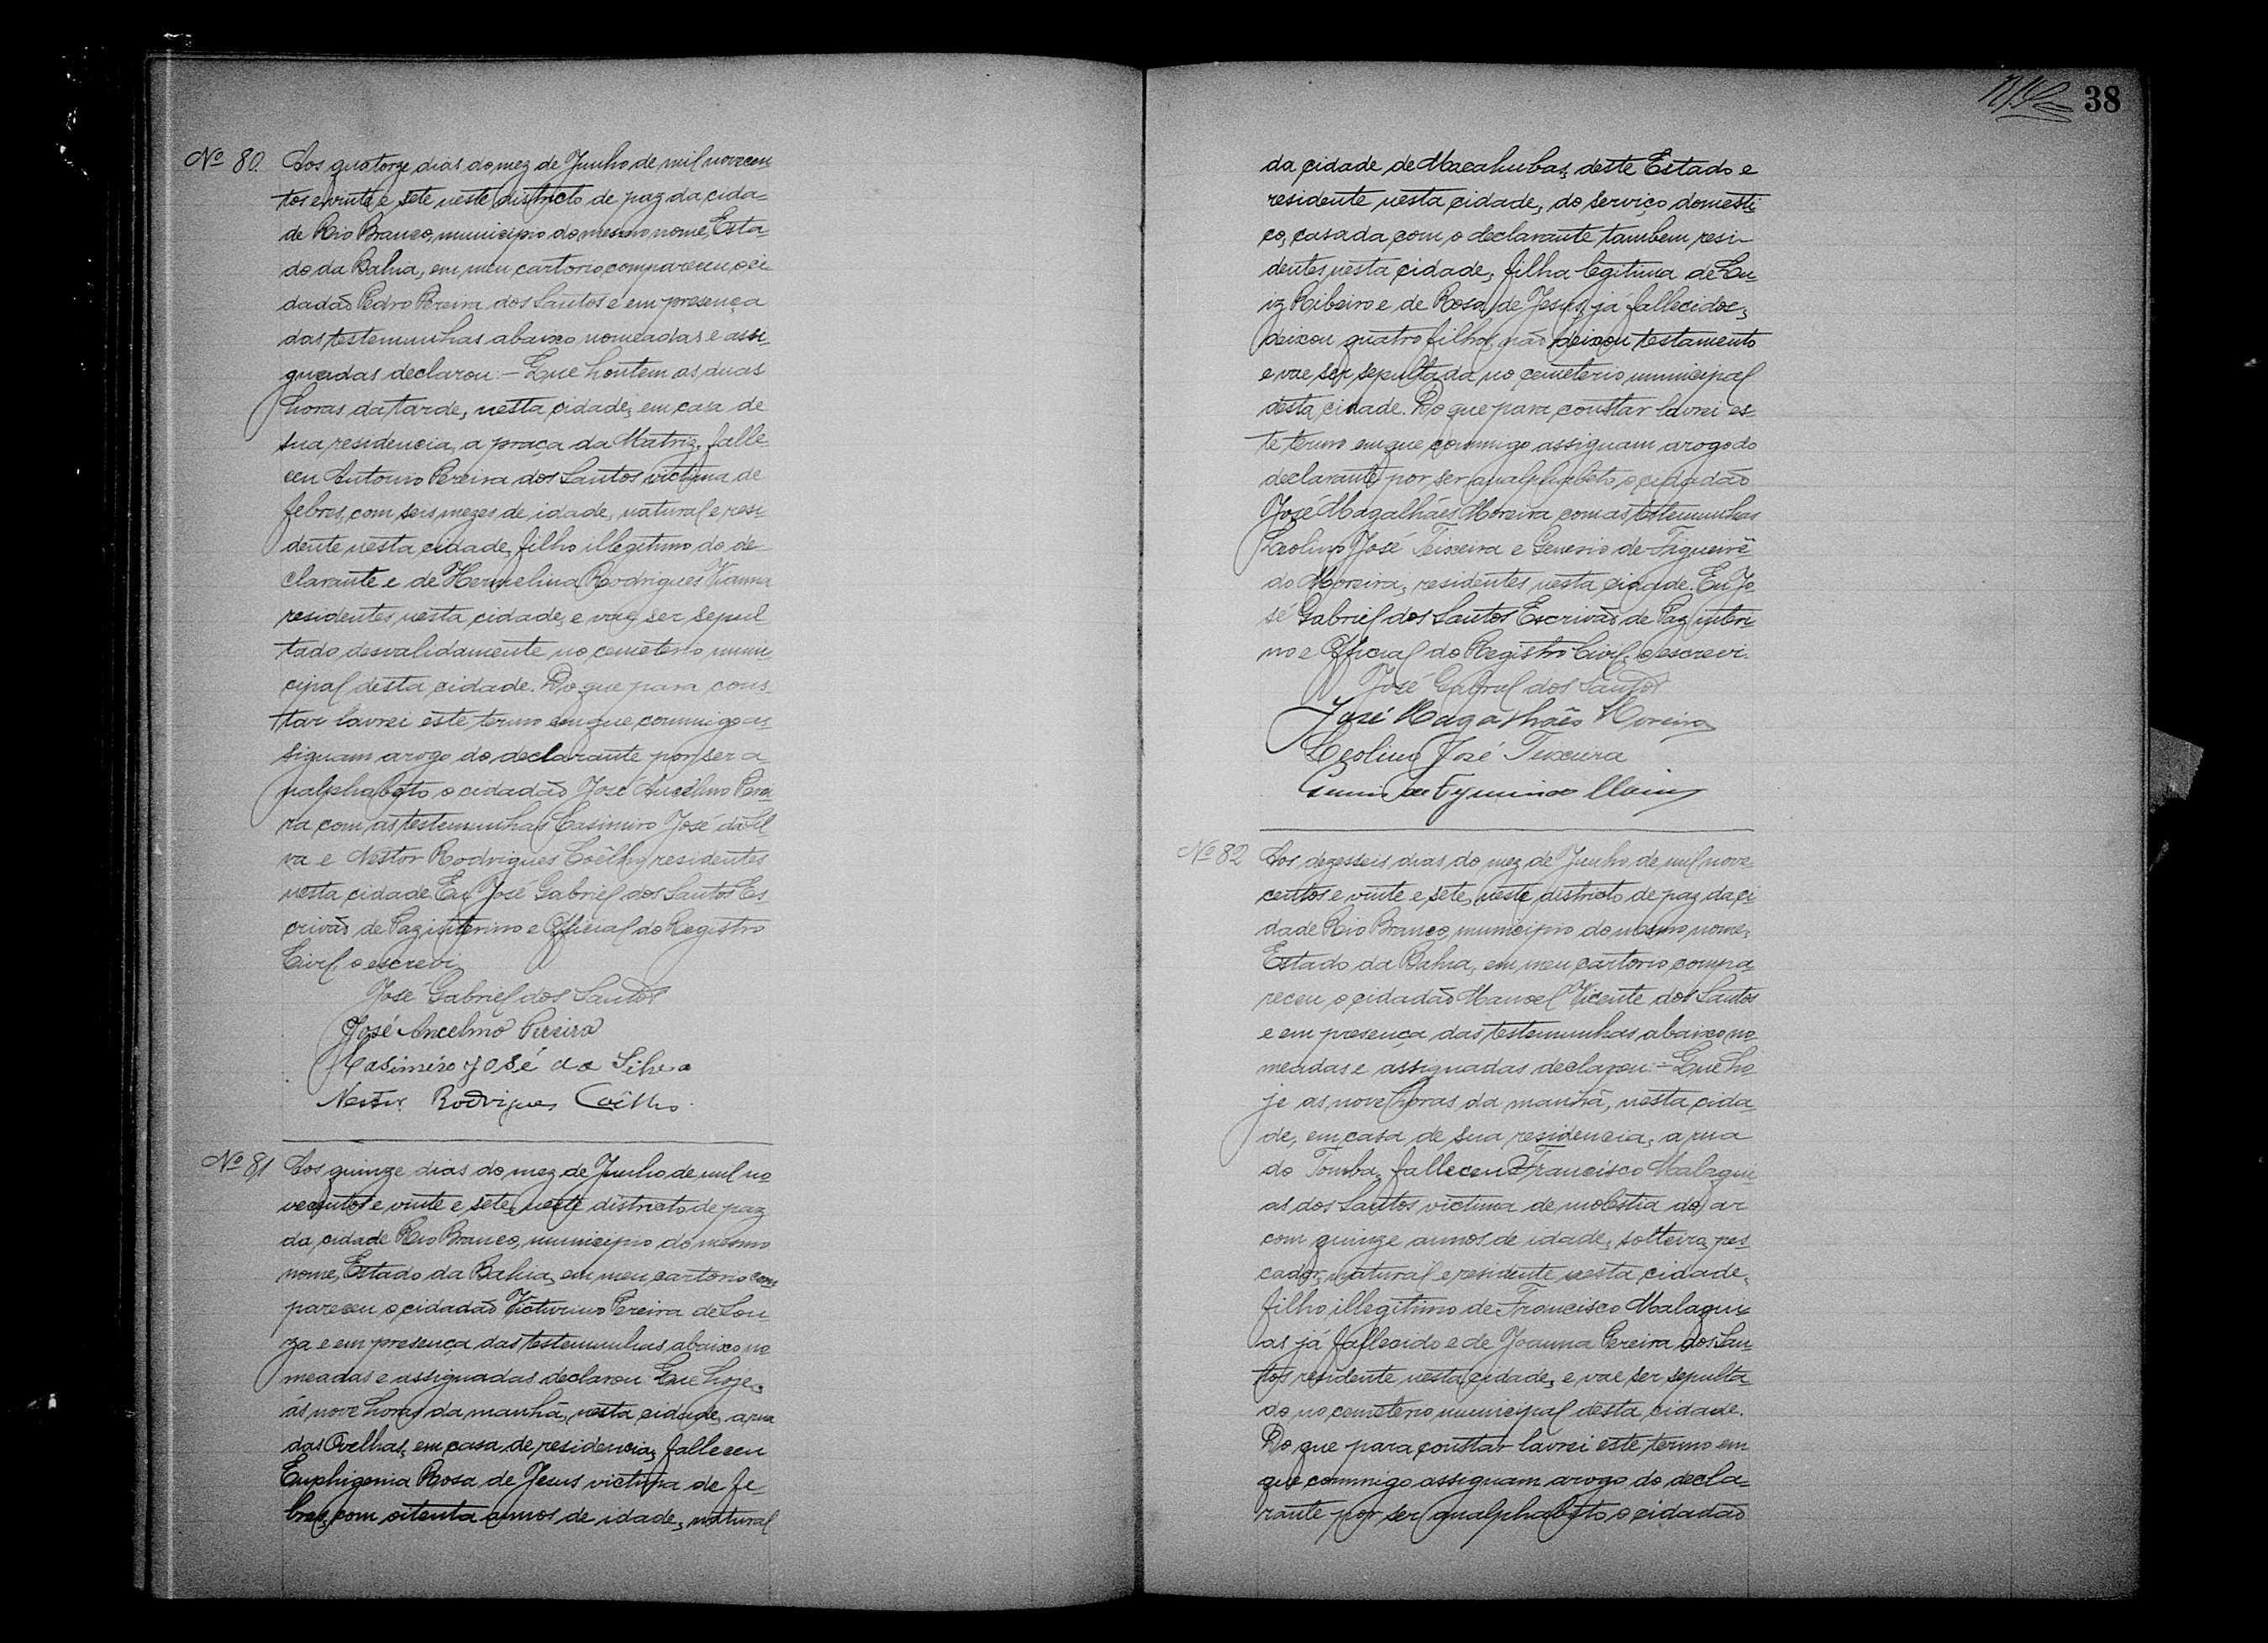 Nº 80. Aos quatorze dias do mez de Junho de mil novecen
tos e vinte e sete neste districto de paz da cida=
de Rio Branco, municipio do mesmo nome, Esta-
do da Bahia, em meu cartorio compareceu o ci
dadão Pedro Pereira dos Santos e em presença
das testemunhas abaixo nomeadas e assi-
gnadas declarou:- Que hontem as duas
horas da tarde, nesta cidade, em casa de
sua residencia, a praça da Matriz, falle-
ceu Antonio Pereira dos Santos victima de
febres, com seis mezes de idade, natural e resi-
dente nesta cidade, filho illegitimo do de-
clarante e de Hermelina Rodrigues Vianna
residentes nesta cidade, e vae ser sepul-
tado desvalidamente no cemeterio muni-
cipal desta cidade. Do que para cons-
tar lavrei este termo em que commigo as-
signam arogo do declarante por ser a-
nalphabeto o cidadão José Ancelmo Perei-
ra com as testemunhas Casimiro José da Sil-
va e Nestor Rodrigues Coêlho residentes
nesta cidade. Eu José Gabriel dos Santos Es-
crivão de Paz interino e Official do Registro
Civil, o escrevi.
José Gabriel dos Santos
José Ancelmo Pereira
Casimiro José da Silva
Nestor Rodrigues Coêlho.
Nº 81 Aos quinze dias do mez de Junho de mil no
vecentos e vinte e sete, neste districto de paz
da cidade Rio Branco, municipio do mesmo
nome, Estado da Bahia, em meu cartorio com
pareceu o cidadão Victurino Pereira de Sou-
za e em presença das testemunhas abaixo no
meadas e assignadas declarou: Que hoje,
ás nove horas da manhã, nesta cidade, a rua
das Ovelhas, em casa de residencia, falleceu
Euphigenia Rosa de Jesus victima de fe-
bres, com oitenta annos de idade, natural
38
da cidade de Macahubas, deste Estado e
residente nesta cidade, do serviço domesti-
co, casada com o declarante tambem resi-
dentes nesta cidade, filha legitima de Lu-
iz Ribeiro e de Rosa de Jesus, já fallecidos,
deixou quatro filhos, não deixou testamento
e vae ser sepultada no cemeterio municipal
desta cidade. Do que para constar lavrei es-
te termo em que commigo assignam arogo do
declarante por ser analphabeto o cidadão
José Magalhães Moreira com as testemunhas
Leolino José Teixeira e Genesio de Figueirê
do Moreira, residentes nesta cidade. Eu Jo
sé Gabriel dos Santos Escrivão de Paz interi-
no e Official do Registro Civil, o escrevi.
José Gabriel dos Santos
José Magalhães Moreira
Leolino José Teixeira
Nº 82 Aos dezesseis dias do mez de Junho de mil nove-
centos e vinte e sete, neste districto de paz da ci
dade Rio Branco, municipio do mesmo nome,
Estado da Bahia, em meu cartorio compa-
receu o cidadão Manoel Vicente dos Santos
e em presença das testemunhas abaixo no-
meadas e assignadas declarou:- Que ho-
je as nove horas da manhã, nesta cida-
de, em casa de sua residencia, a rua
do Tomba, falleceu Francisco Malaqui-
as dos Santos victima de molestia do ar
com quinze annos de idade, solteiro, pes-
cador, natural e residente nesta cidade,
filho illegitimo de Francisco Malaqui-
as já fallecido e de Joanna Pereira dos San-
tos residente nesta cidade, e vae ser sepulta-
do no cemeterio municipal desta cidade.
Do que para constar lavrei este termo em
que commigo assignam arogo do decla-
rante por ser analphabeto o cidadão